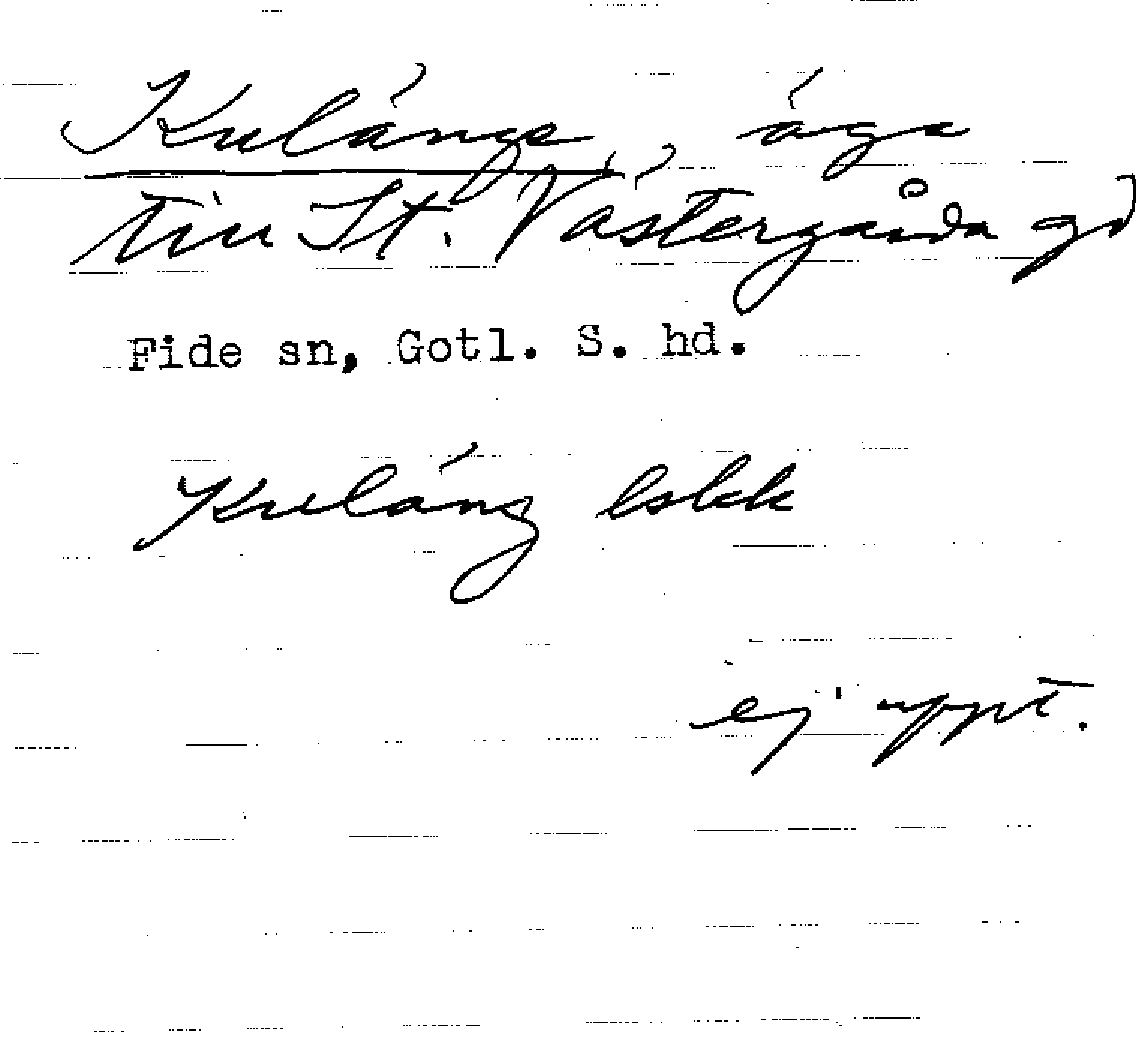 Kulänge, äga
till St. Västergårda gd
Fide sn, Gotl. S. hd.
Kuläng lskk
ej uppt.